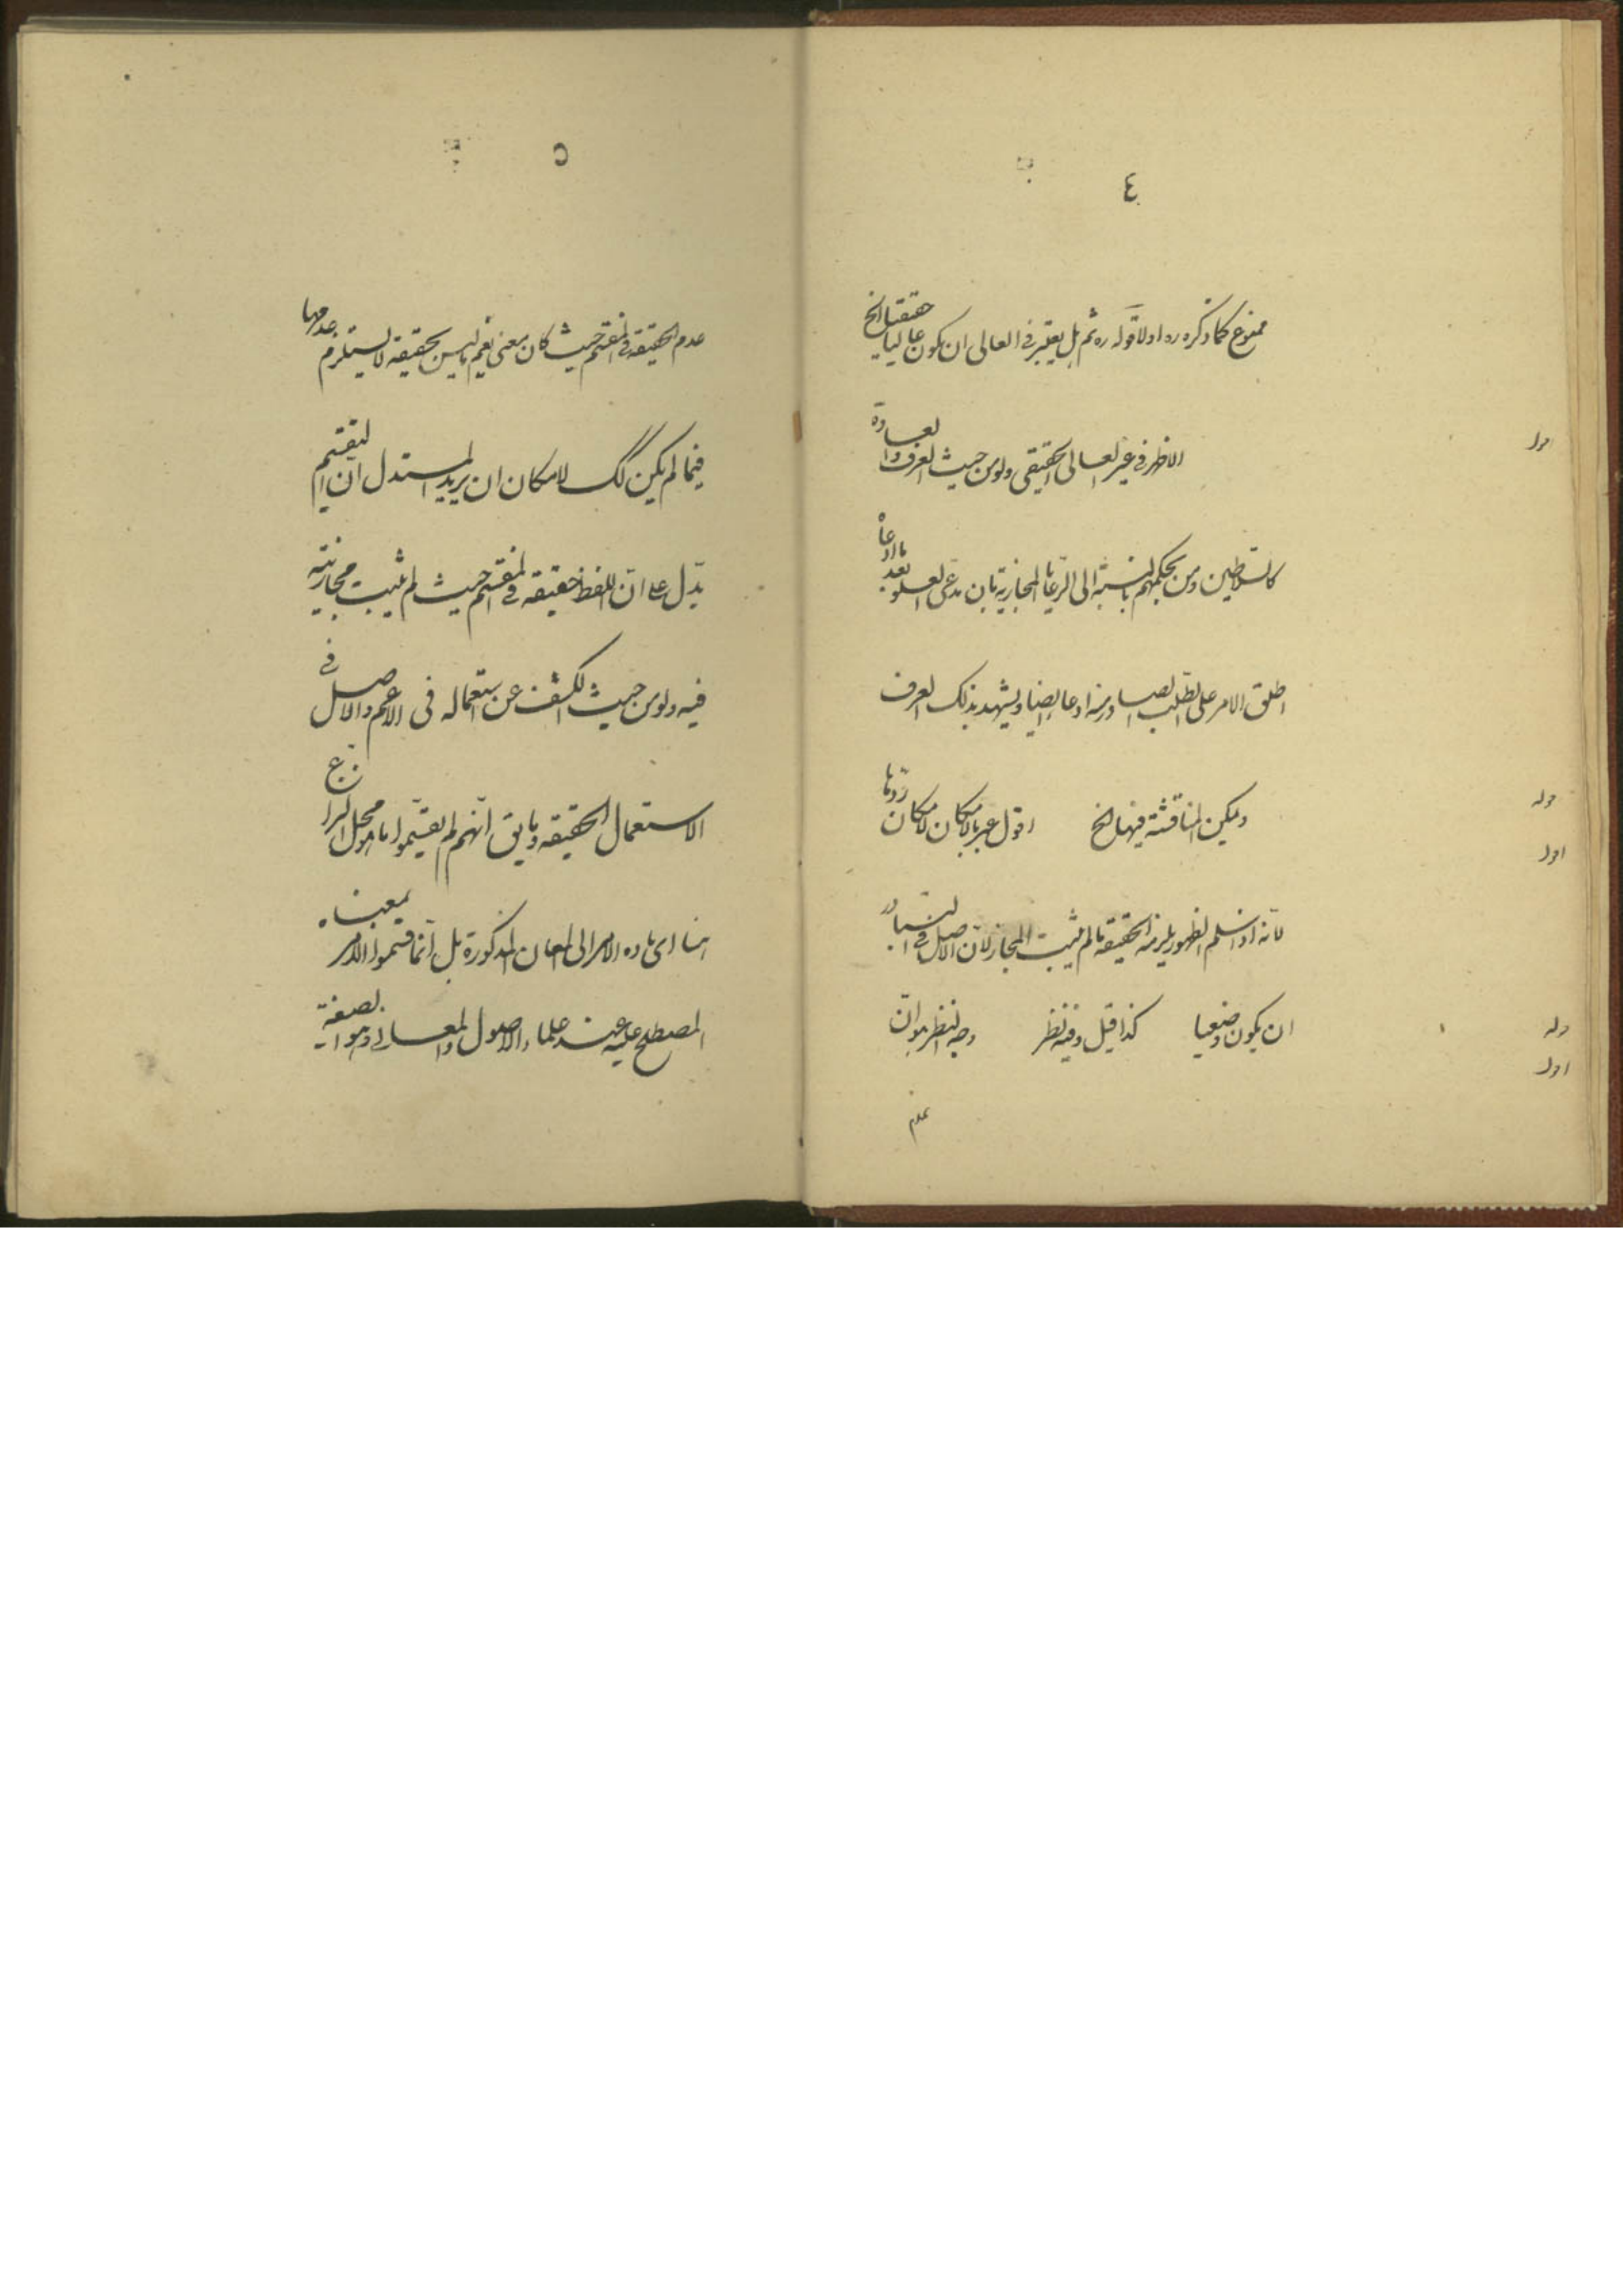 ٤
ممنوع كما ذكره ره اولا قوله ره ثم بل يعتبر فى العالى ان يكون عاليا حقيقيا الخ
اقول
الاظهر فى غير العالى الحقيقى ولو من حيث العرف والعادة
كالسلاطين ومن بحكمهم بالنسبة الى الرعايا المجازية بان يدعى العلو بعد ما ادعاه
اطلق الامر على الطلب الصادر منه ادعا ايضا ويشهد بذلك العرف
قوله
ويمكن المناقشة فيها الخ اقول عبر بالامكان لامكان ردها
اقول
لانه اذا سلم الظهور يلزمه الحقيقة ما لم يثبت المجاز لان الاصل فى التبادر
قوله
ان يكون وضعيا كذا قيل وفيه نظر وجه النظر هو ان
اقول
عدم
٥
عدم الحقيقة فى المقسم حيث كان بمعنى نعم ما ليس بحقيقة لا يستلزم عدمها
فيما لم يكن كك لامكان ان يريد المستدل ان التقسيم
يدل على ان اللفظ حقيقة فى المقسم حيث لم يثبت مجازيته
فيه ولو من حيث الكشف عن استعماله فى الاعم والاصل فى
الاستعمال الحقيقة وما يق انهم لم يقسموا ما هو محل النزاع
هنا اى ماده الامر الى المعان المذكورة بل انما قسموا الامر بمعناه
المصطلح عليه عند علماء الاصول والمعانى وهو الصيغة